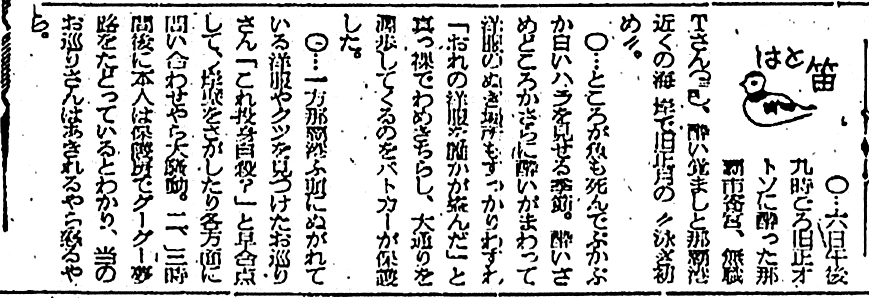 はと笛
〇…六日午後
九時ごろ旧正オ
トソに酔った那
覇市容宮、無職
Tさん、酔い覚ましと那覇港
近くの海岸で旧正月の〃泳ぎ初
め〃。
〇…ところが魚も死んでぷかぷ
か白いハラを見せる季節。酔いさ
めどころかさらに酔いがまわって
洋服のぬぎ場所もすっかりわすれ
「おれの洋服を誰かが盗んだ」と
真っ裸でわめきちらし、大通りを
濶歩してくるのをパトカーが保護
した。
〇…一方那覇港ふ頭にぬがれて
いる洋服やクツを見つけたお巡り
さん「これ投身自殺？」と早合点
して、岸壁をさがしたり各方面に
問い合わせやら大騒動。二、三時
間後に本人は保護房でグーグー夢
路をたどっているとわかり、当の
お巡りさんはあきれるやら怒るや
ら。